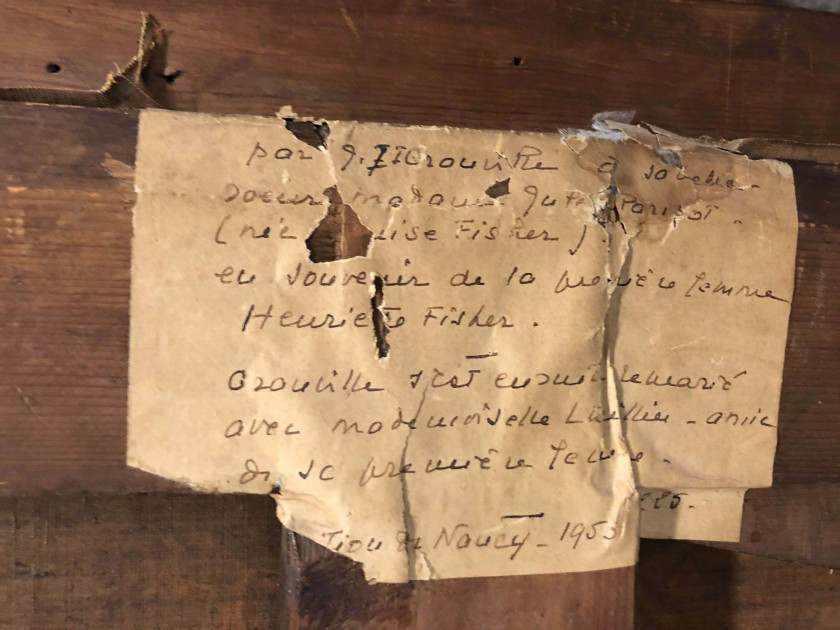 par J. I Grouville à sa belle-
soeur madame Jules Parisot.
(née Louise Fisher).
en souvenir de la première femme
Henriette Fisher.
Grouville s'est ensuite remarié
avec mademoiselle - amie
de sa première femme.
225.
tion de Nancy - 1953